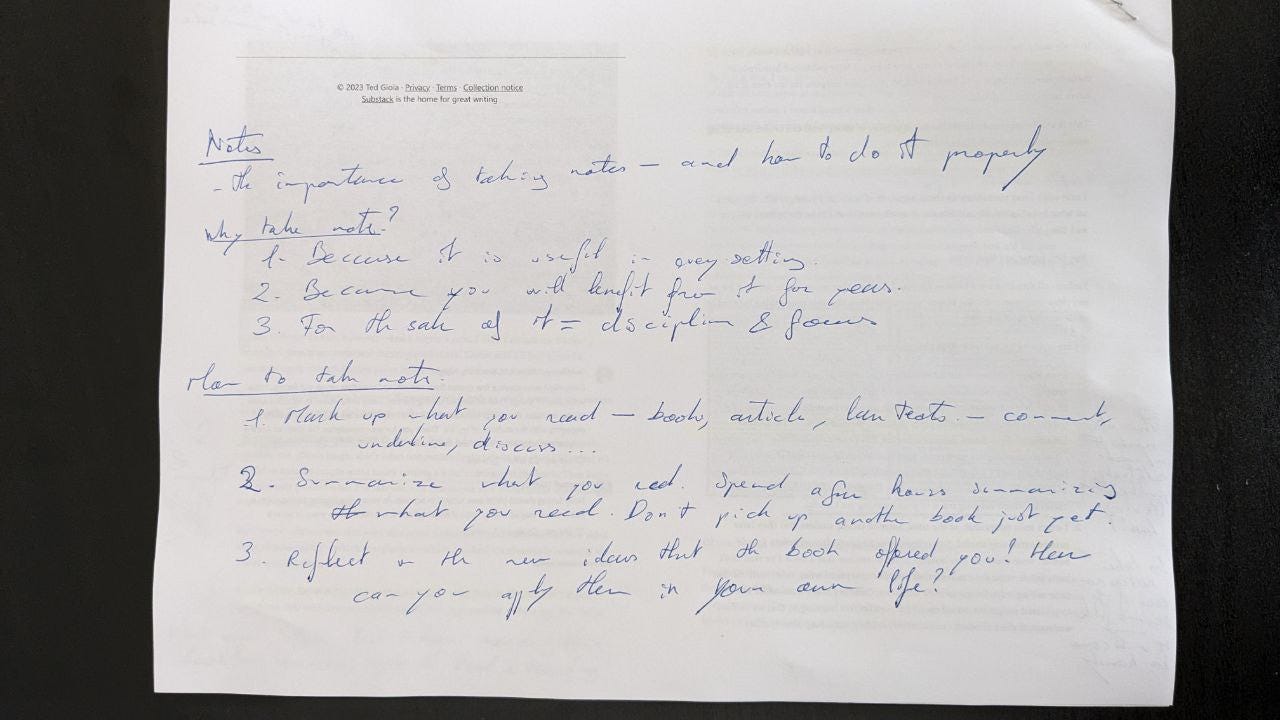 © 2023 Ted Gioia · Privacy · Terms · Collection notice
Substack is the home for great writing
Notes
- the importance of taking notes — and how to do it properly
Why take note?
1- Because it is useful in every setting.
2. Because you will benefit from it for years.
3. For the sake of it = discipline & focus
How to take note.
1. Mark up what you read — books, article, texts. — comment,
underline, discuss...
2. Summarize what you read. Spend a few hours summarizing
what you read. Don't pick up another book just yet.
3. Reflect on the new ideas that the book offered you! How
can you apply them in your own life?